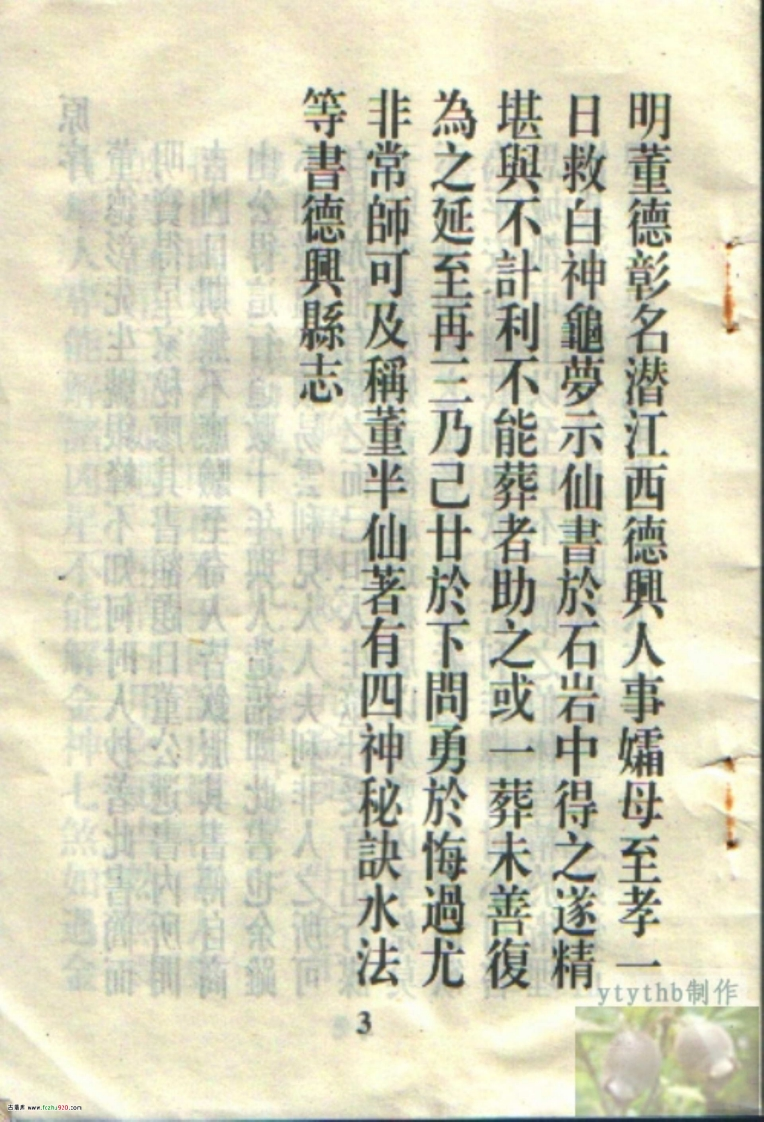 明董德彰名潛江西德興人事孀母至孝一
日救白神龜夢示仙書於石岩中得之遂精
堪與不計利不能葬者助之或一葬未善復
為之延至再三乃己甘於下問勇於悔過尤
非常師可及稱董半仙著有四神秘訣水法
等書德興縣志
3
ytythb制作
www.fozhu920.com